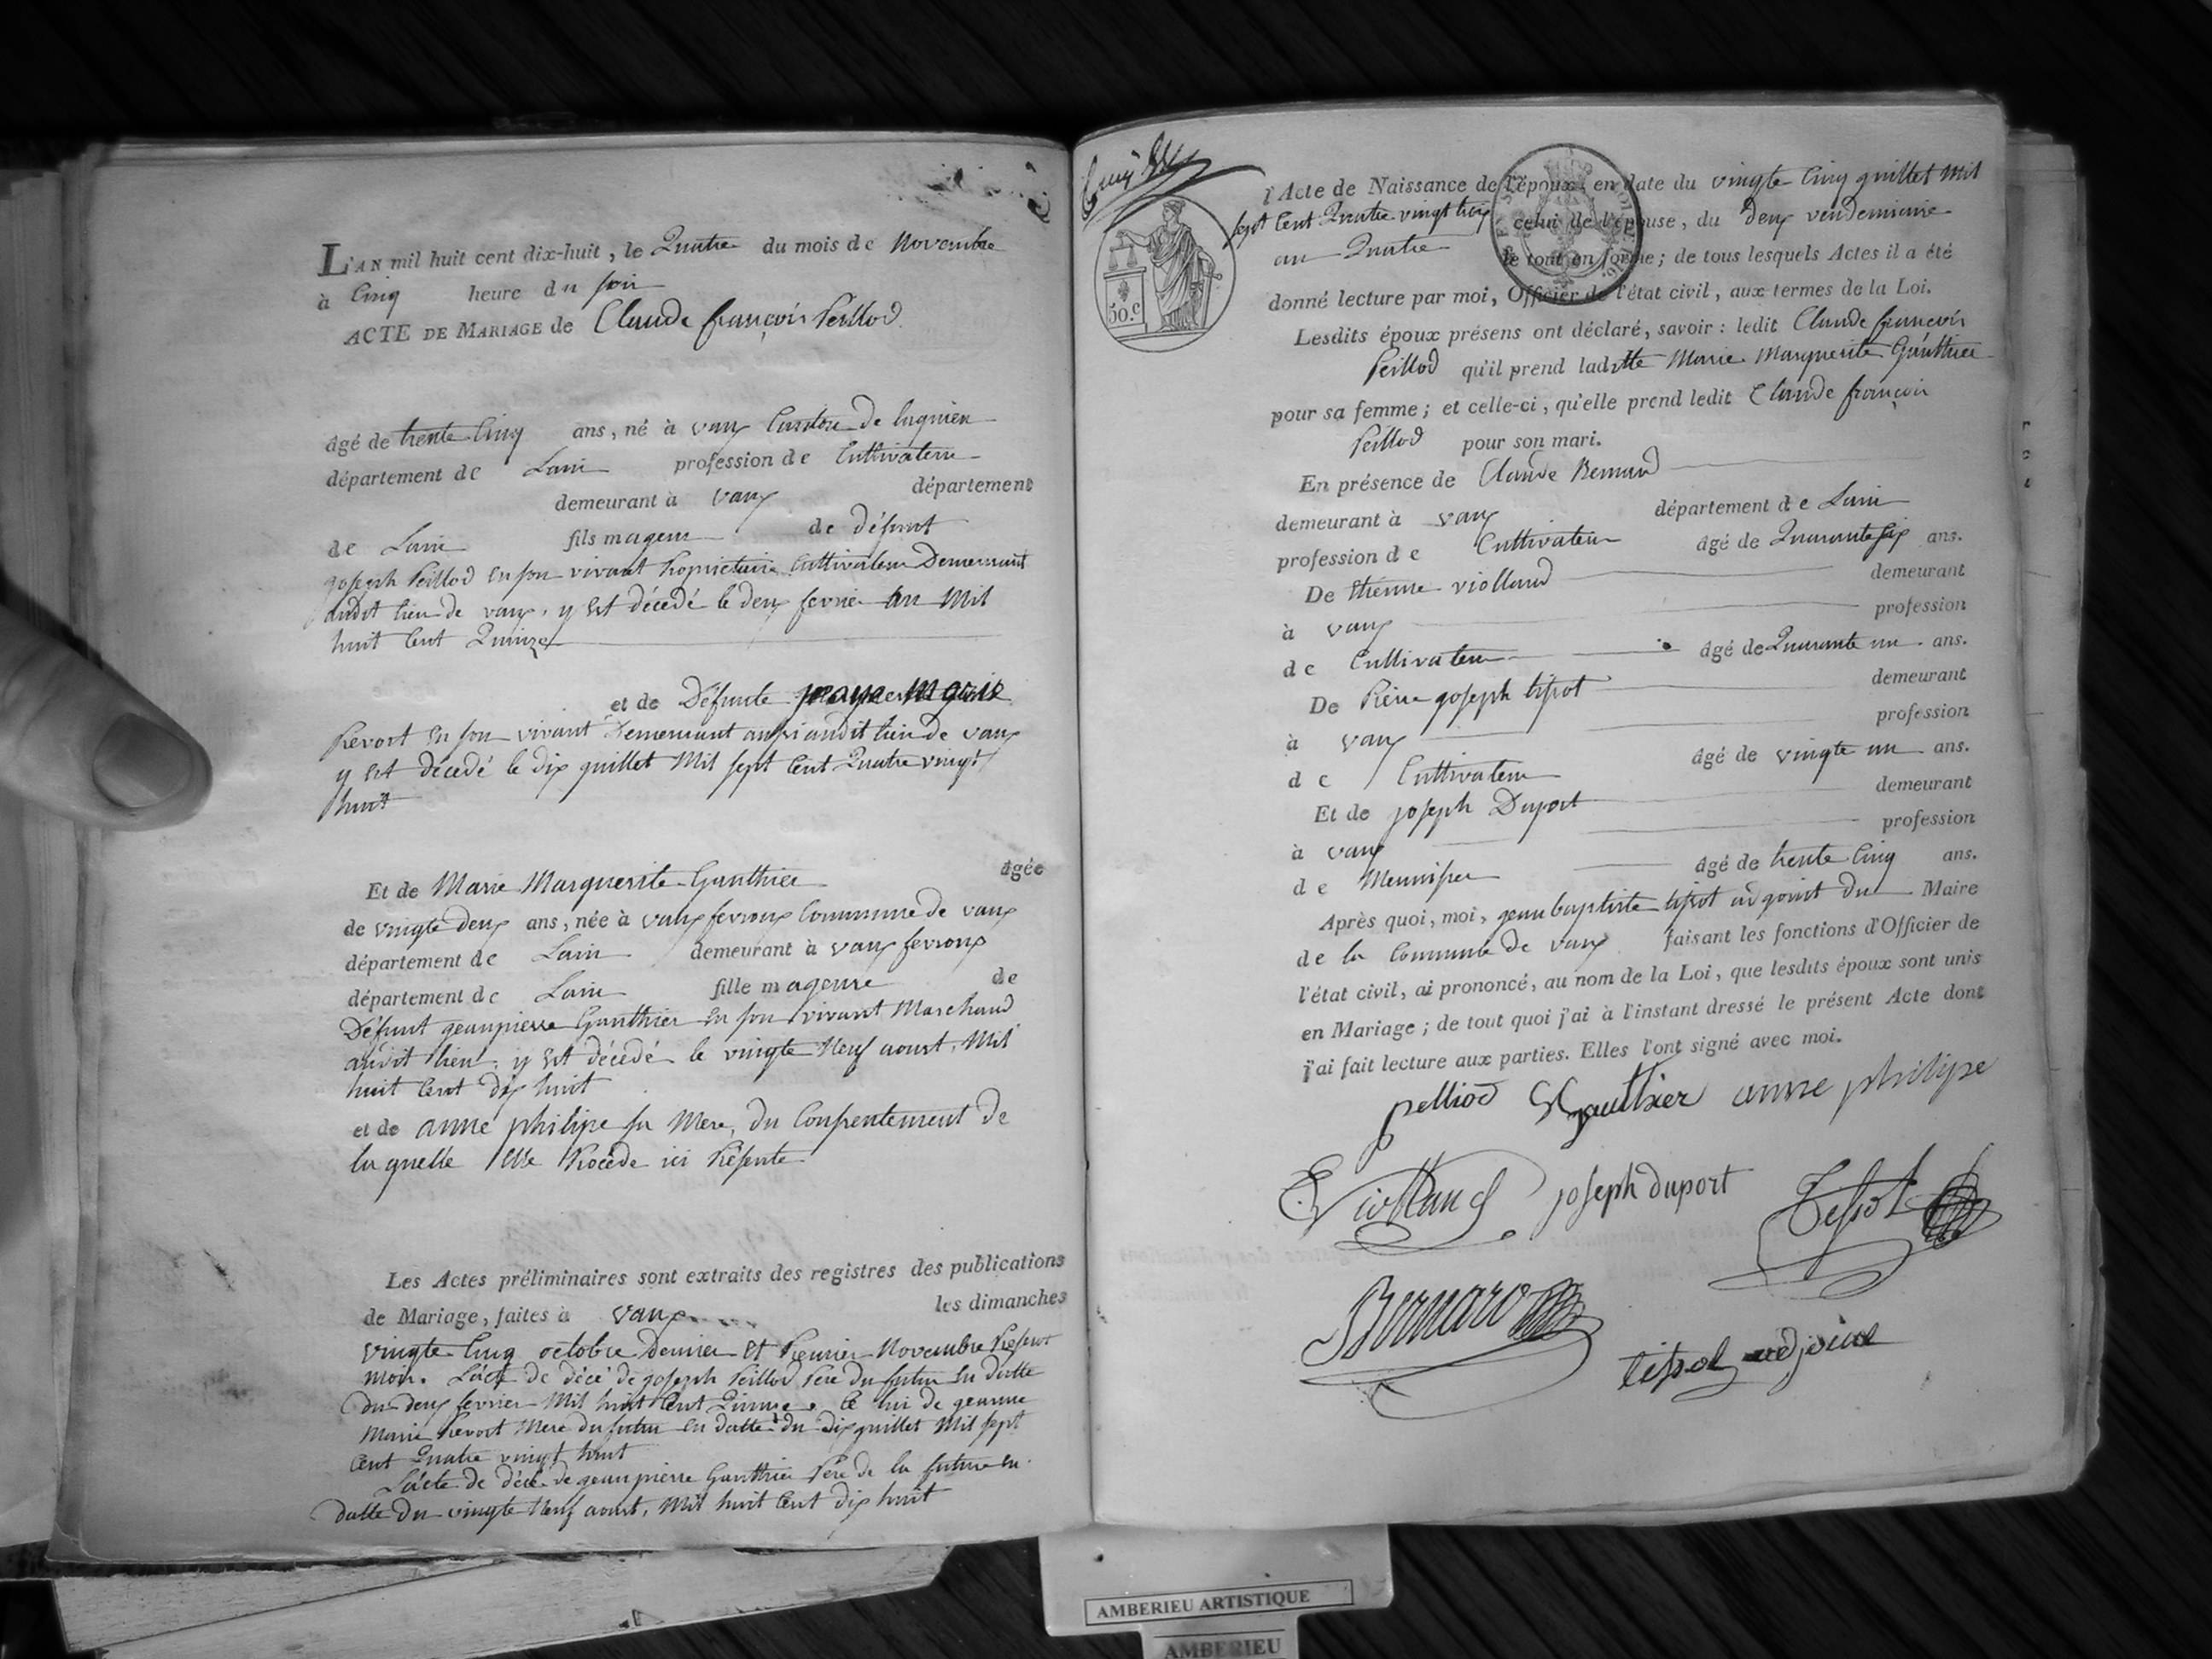 L'AN mil huit cent dix-huit, le Quatre du mois de Novembre
à Cinq heure du soir
ACTE DE MARIAGE de Claude françois Peillod
âgé de trente Cinq ans, né à vaux Canton de lagnieu
département de Lain profession de Cultivateur
demeurant à vaux département
de Lain fils mageur de défunt
joseph Peillod en son vivant Propriétaire Cultivateur Demeurant
audit lieu de vaux, y est décédé le deux fevrier an Mil
huit Cent Quinze
et de Défunte jeanne Marie
Prevost en son vivant Demeurant aussi audit lieu de vaux
y est décedé le dix guillet Mil sept Cent Quatre vingt
huit
Et de Marie Marguerite Gauthier âgée
de vingte deux ans, née à vaux fevroux Commune de vaux
département de Lain demeurant à vaux fevroux
département de Lain fille mageure de
Défunt geanpierre Gauthier en son vivant Marchand
audit lieu, y est décédé le vingte Neuf aoust, Mil
huit Cent dix huit
et de anne philipe sa Mere, du Consentement de
la quelle elle Procède ici Présente
Les Actes préliminaires sont extraits des registres des publications
de Mariage, faites à vaux les dimanches
vingte Cinq octobre dernier et Premier Novembre Présent
mois. L'acte de décé de joseph Peillod Pere du futur en datte
du deux fevrier Mil huit Cent Quinze, Ce lui de geanne
Marie Prevost Mere du futur en datte du dix guillet Mil sept
Cent Quatre vingt huit
L'acte de décé de geanpierre Gauthier Pere de la future en
datte du vingte Neuf aoust, Mil huit Cent dix huit
50.c
l'Acte de Naissance de l'époux, en date du vingte Cinq guillet Mil
sept Cent Quatre vingt trois celui de l'épouse, du deux vendemiaire
an Quatre le tout en forme; de tous lesquels Actes il a été
donné lecture par moi, Officier de l'état civil, aux termes de la Loi.
Lesdits époux présens ont déclaré, savoir: ledit Claude françois
Peillod qu'il prend ladite Marie Marguerite Gauthier
pour sa femme; et celle-ci, qu'elle prend ledit Claude françois
Peillod pour son mari.
En présence de Claude Bernard
demeurant à vaux département de Lain
profession de Cultivateur âgé de Quarante six ans.
De Etienne violland demeurant
à vaux profession
de Cultivateur âgé de Quarante un ans.
De Pierre joseph tissot demeurant
à vaux profession
de Cultivateur âgé de vingte un ans.
Et de joseph Duport demeurant
à vaux profession
de Meunisier âgé de trente Cinq ans.
Après quoi, moi, jean baptiste tissot adjoint du Maire
de la Commune de vaux faisant les fonctions d'Officier de
l'état civil, ai prononcé, au nom de la Loi, que lesdits époux sont unis
en Mariage; de tout quoi j'ai à l'instant dressé le présent Acte dont
j'ai fait lecture aux parties. Elles l'ont signé avec moi.
pelliod gauthier anne philipe
E Violland joseph duport Tissot
Bernard
tissot adjoint
AMBERIEU ARTISTIQUE
AMBERIEU